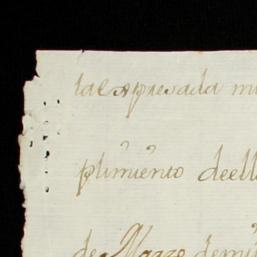 la espresada mi
plimiento deell
de Marzo demi